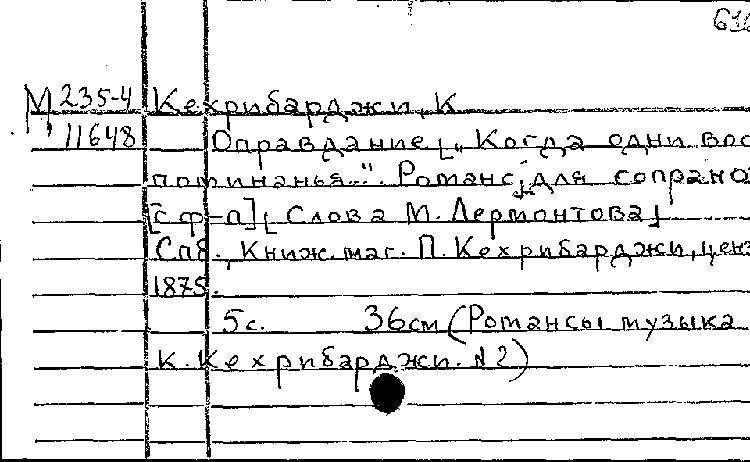 М 235-4 Кехрибарджи, К
11648 Оправдание [„Когда одни вос
поминанья..." Романс] для сопрано
[с ф-п] [Слова М. Лермонтова]
Спб., Книж. маг. П. Кехрибарджи, ценз
1875.
5с. 36см (Романсы музыка
К. Кехрибарджи. №2)